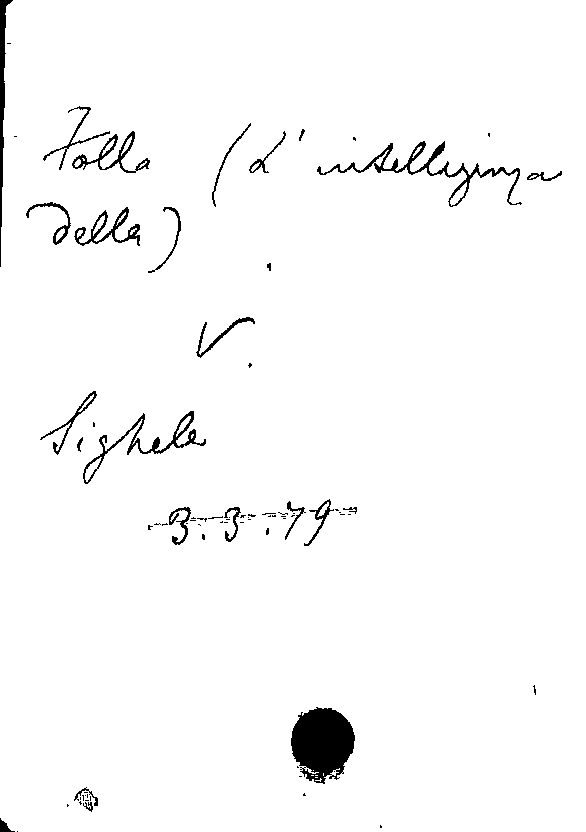 Folla (L'intelligenza
della)
V.
Sighele
3.3.79